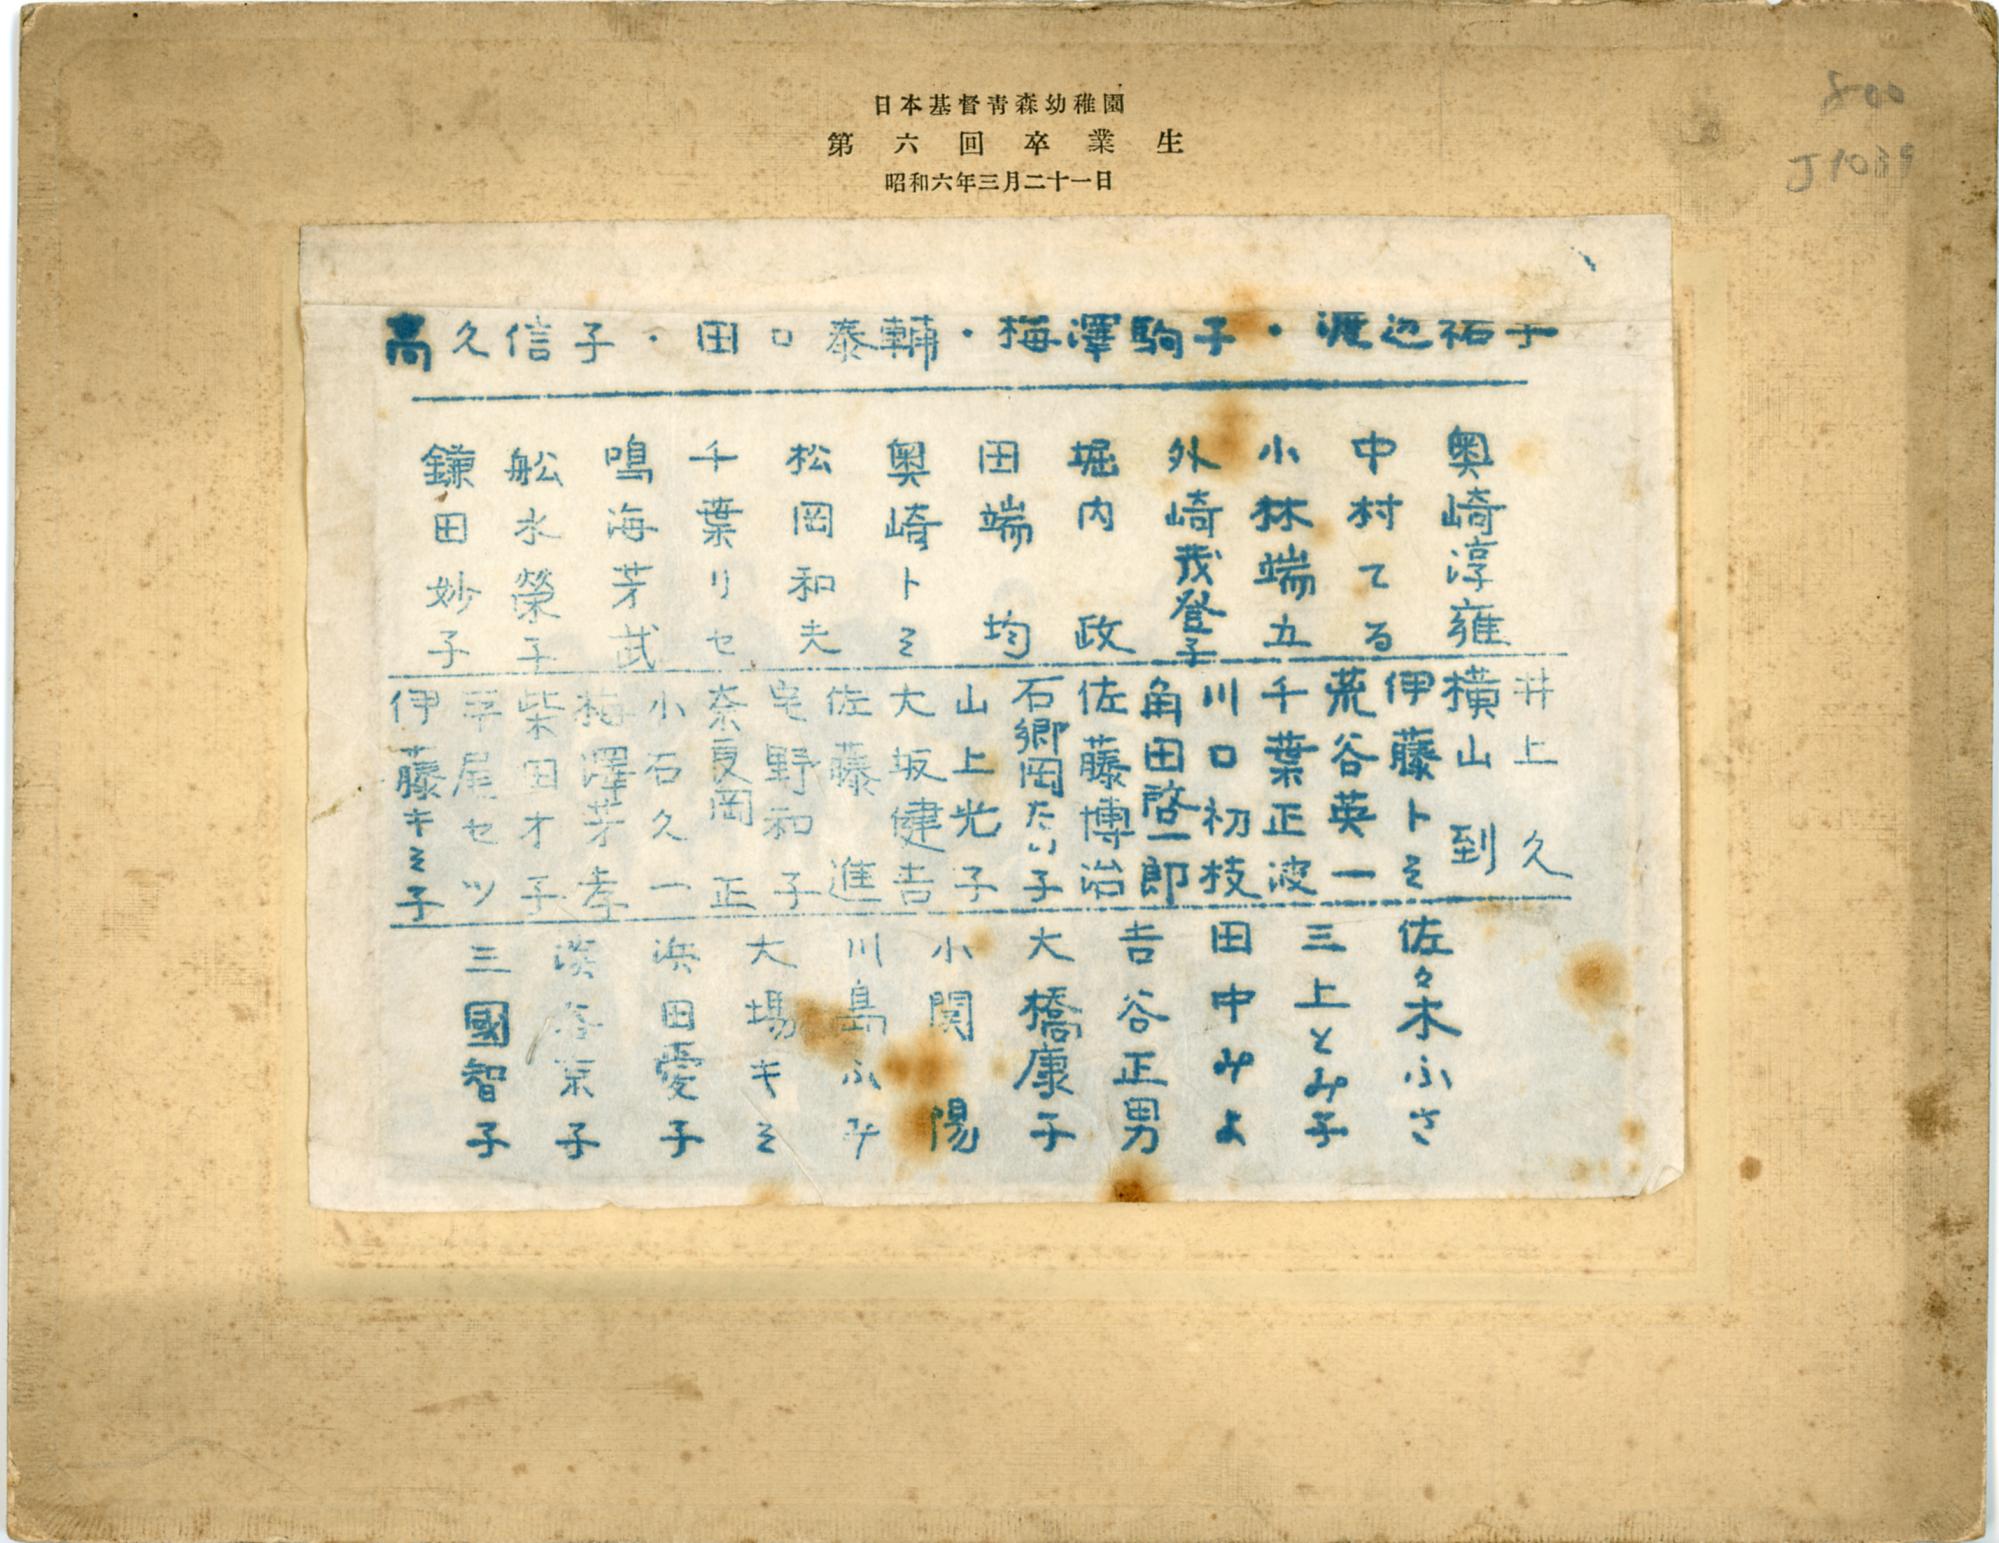 日本基督青森幼稚園
第六回卒業生
昭和六年三月二十一日
800
J1039
高久信子・田口泰輔・梅澤駒子・渡辺祐子
奥崎淳雍
中村てる
小林端五
外崎我登子
堀内政
田端均
奥崎トミ
松岡和夫
千葉リセ
鳴海芳武
舩水榮子
鎌田妙子
井上久
横山到
伊藤トミ
荒谷英一
千葉正波
川口初枝
角田啓一郎
佐藤博治
石郷岡たい子
山上光子
大坂健吉
佐藤進
宅野和子
奈良岡正
小石久一
梅澤芳孝
柴田才子
平尾セツ
伊藤キミ子
佐々木ふさ
三上とみ子
田中みよ
吉谷正男
大橋康子
小関陽
川島ふみ
大場キミ
浜田愛子
渋谷京子
三國智子